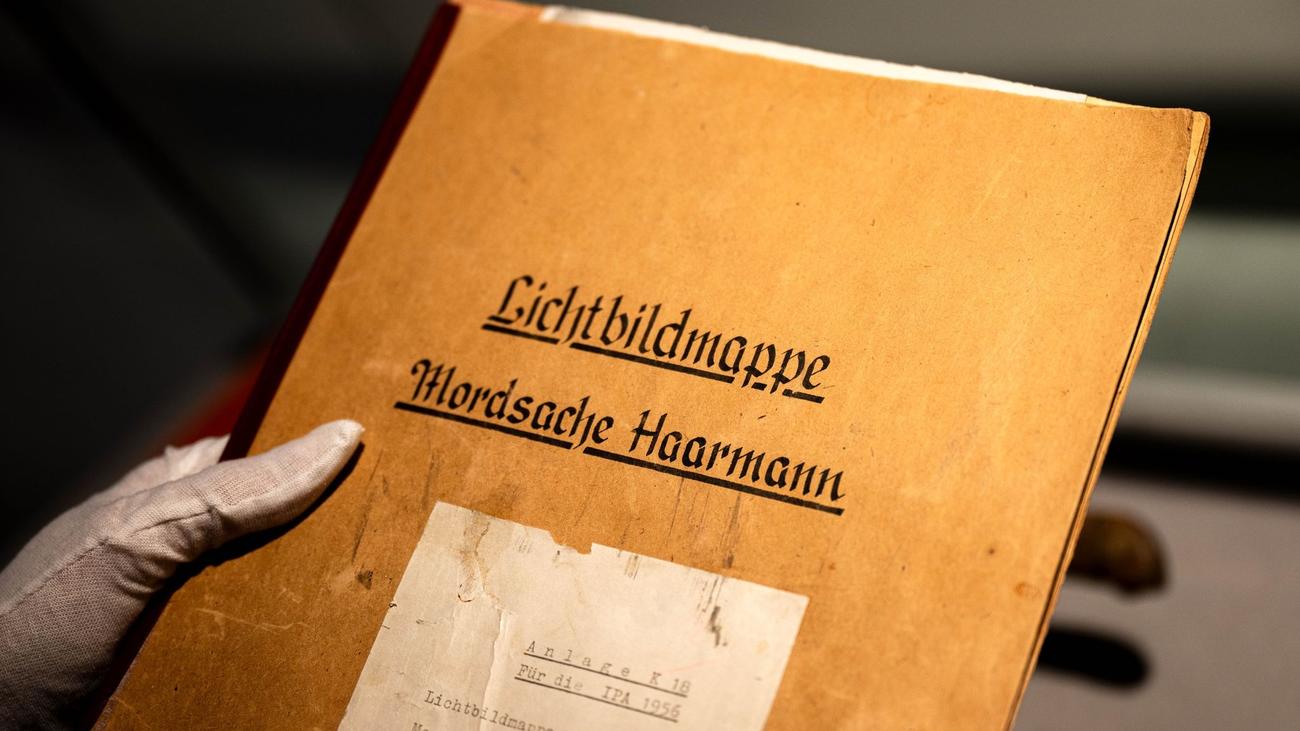 Lichtbildmappe
Mordsache Haarmann
Anlage K 18
Für die IPA 1956
Lichtbildmappe